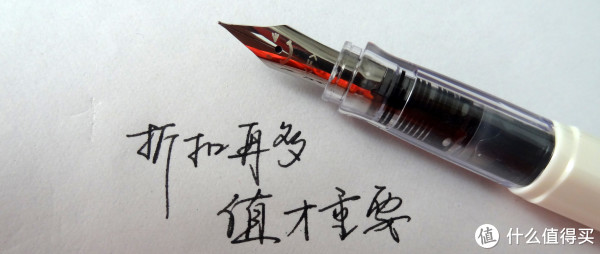 折扣再多
值才重要
值 什么值得买